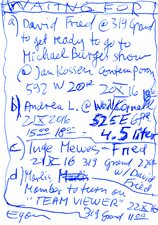 WAITING FOR
a) David Fred @ 319 Grand
to get ready to go to
Michael Burges show
@ Jan Kossen Contemporary
592 W 20st 22X16
b) Andrea L. @ Weill Cornell
21X2016 525 E 68
15:00 4.5 liter
c) Tuge Mewes - Fred
21X16 319 Grand 22X
d) Marlis w/ David
Member to turn on Fred
"TEAM VIEWER" 22X16
Egon 319 Grand 11:00